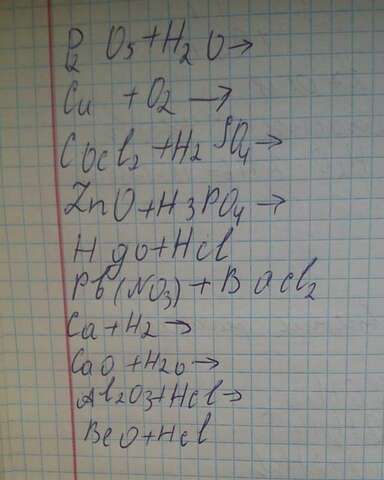 P2 O5+H2 O→
Cu + O2 →
COCl2 +H2 SO4→
ZnO+H3PO4→
H gO+HCl
Pb(NO3)+BaCl2
Ca+H2→
CaO+H2O→
Al2O3+HCl→
BeO+HCl